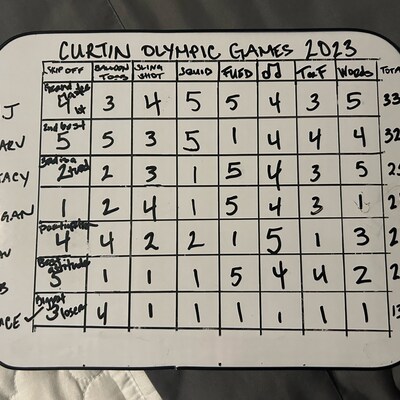 CURTIN OLYMPIC GAMES 2023
SKIP OFF BALLOON TOSS SLING SHOT SQUID FUED ♫ T or F Words TOTA
J 4 1st 3 4 5 5 4 3 5 33
ARV 2nd best 5 5 3 5 1 4 4 4 32
TACY 2 2 3 1 5 4 3 5 2
GAN 1 2 4 1 5 4 3 1 2
4 4 2 2 1 5 1 3 2
Best attitude 1 1 1 5 4 4 2 2
CE ✓ 3 loser 4 1 1 1 1 1 1 13